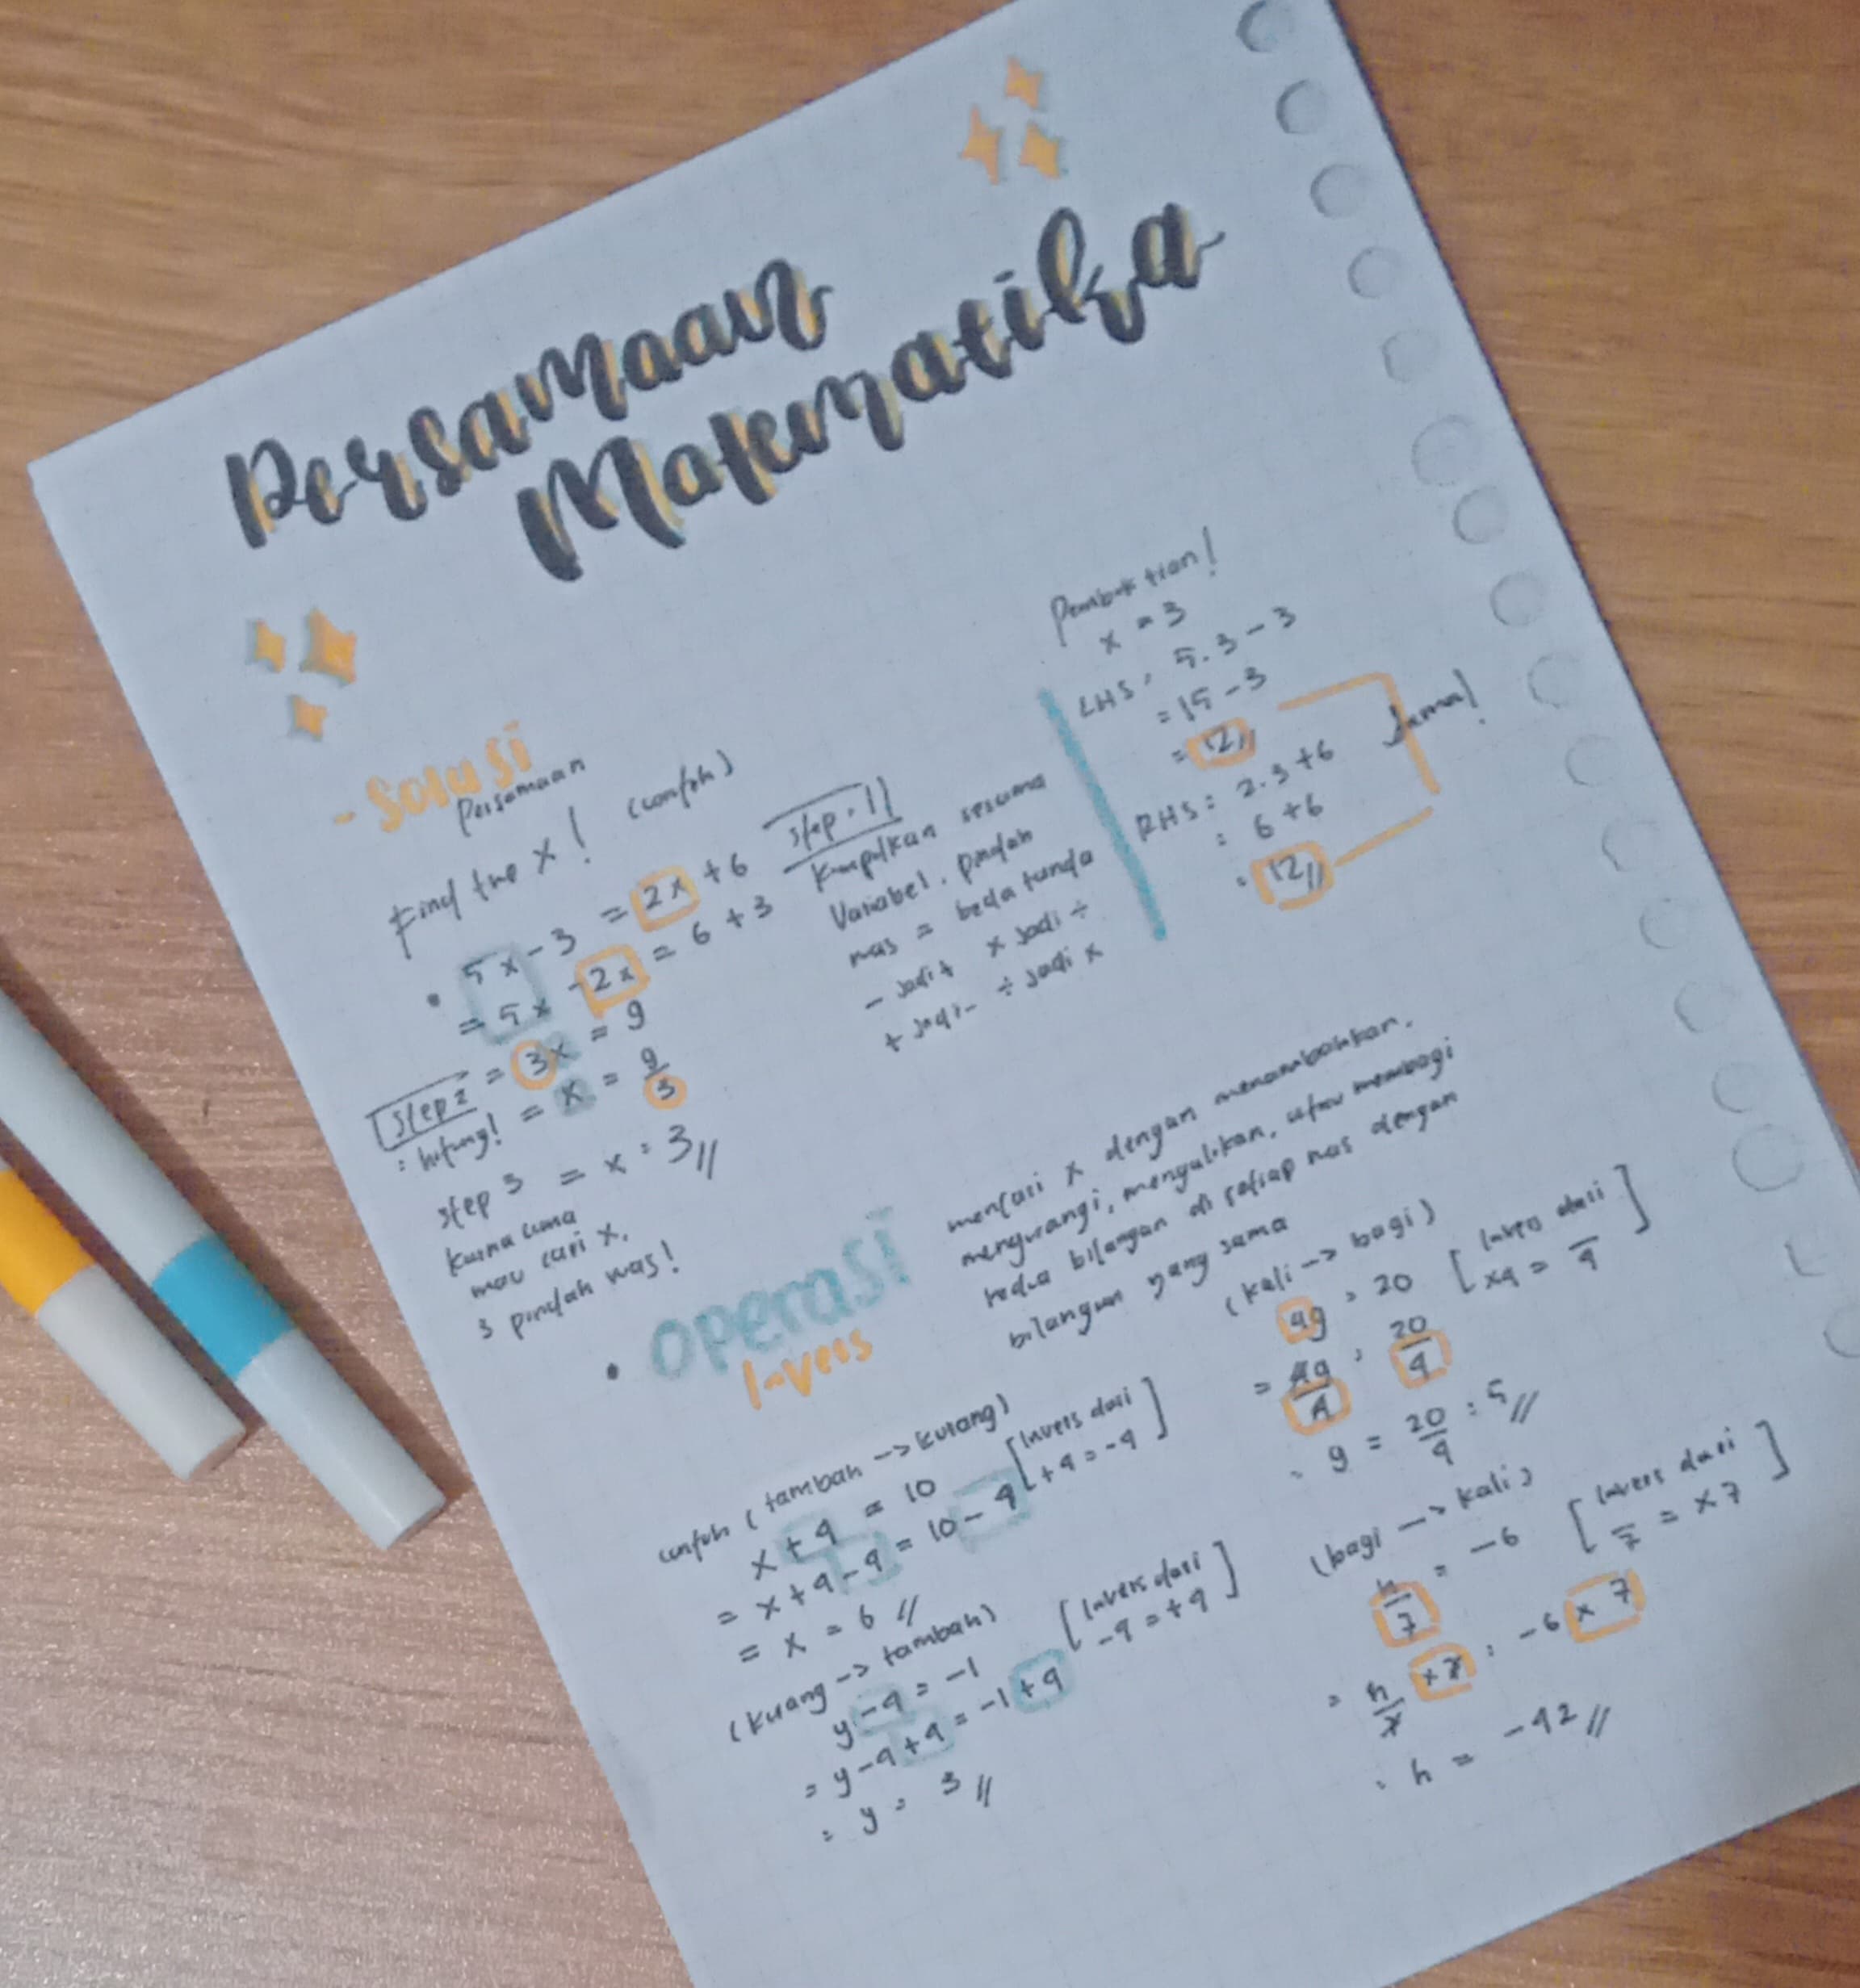 Persamaan
Matematika
- Solusi
Persamaan
Find the x! (contoh)
• 5x - 3 = 2x + 6
= 5x - 2x = 6 + 3
= 3x = 9
step 2 : hitung! = x = 9/3
step 3 = x = 3//
karna cuma
mau cari x,
3 pindah ruas!
step 1
kumpulkan sesuma
Variabel. pindah
ruas = beda tanda
- jadi + x jadi ÷
+ jadi - ÷ jadi x
Pembuktian!
x = 3
LHS: 5.3 - 3
= 15 - 3
= 12//
RHS: 2.3 + 6
= 6 + 6
= 12//
Sama!
• operasi
Invers
mencari x dengan menambahkan,
mengurangi, mengalikan, atau membagi
kedua bilangan di setiap ruas dengan
bilangan yang sama
contoh (tambah -> kurang)
x + 4 = 10 [Invers dari +4 = -4]
= x + 4 - 4 = 10 - 4
= x = 6 //
(kurang -> tambah)
y - 4 = -1 [Invers dari -4 = +4]
= y - 4 + 4 = -1 + 4
= y = 3 //
(kali -> bagi)
4g = 20 [Invers dari x4 = ÷4]
= 4g/4 = 20/4
= g = 20/4 = 5//
(bagi -> kali)
h/7 = -6 [Invers dari ÷7 = x7]
= h/7 x7 = -6 x 7
= h = -42 //